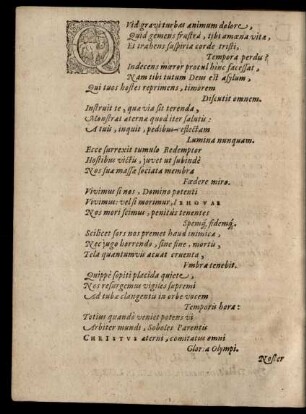 QVid gravi turbas animum dolore,
Quid gemens frustrà, tibi amœna vitæ,
Et trahens suspiria corde tristi,
Tempora perdis?
Indecens mœror procul hinc facessat,
Nam tibi tutum Deus est asylum,
Qui tuos hostes reprimens, timorem
Discutit omnem.
Instruit te, qua via sit terenda,
Monstrat æterna quod iter salutis:
A tuis, inquit, pedibus reflectam
Lumina nunquam.
Ecce surrexit tumulo Redemptor
Hostibus victis, juvet ut subindè
Nos suæ massæ sociata membra
Fœdere miro.
Vivimus si nos, Domino potenti
Vivimus: vel si morimur, IEHOVAE
Nos mori scimus, penitus tenentes
Spemq;, fidemq;.
Scilicet fors nos premet haud inimica,
Nec jugo horrendo, sine fine, mortis,
Tela quantumvis acuat cruenta,
Vmbra tenebit.
Quippè sopiti placida quiete,
Nos resurgemus vigiles supremi
Ad tubæ clangentis in orbe vocem
Temporis hora:
Totius quandò veniet potens vi
Arbiter mundi, Soboles Parentis
CHRISTVS æterni, comitatus omni
Gloria Olympi.
Noster